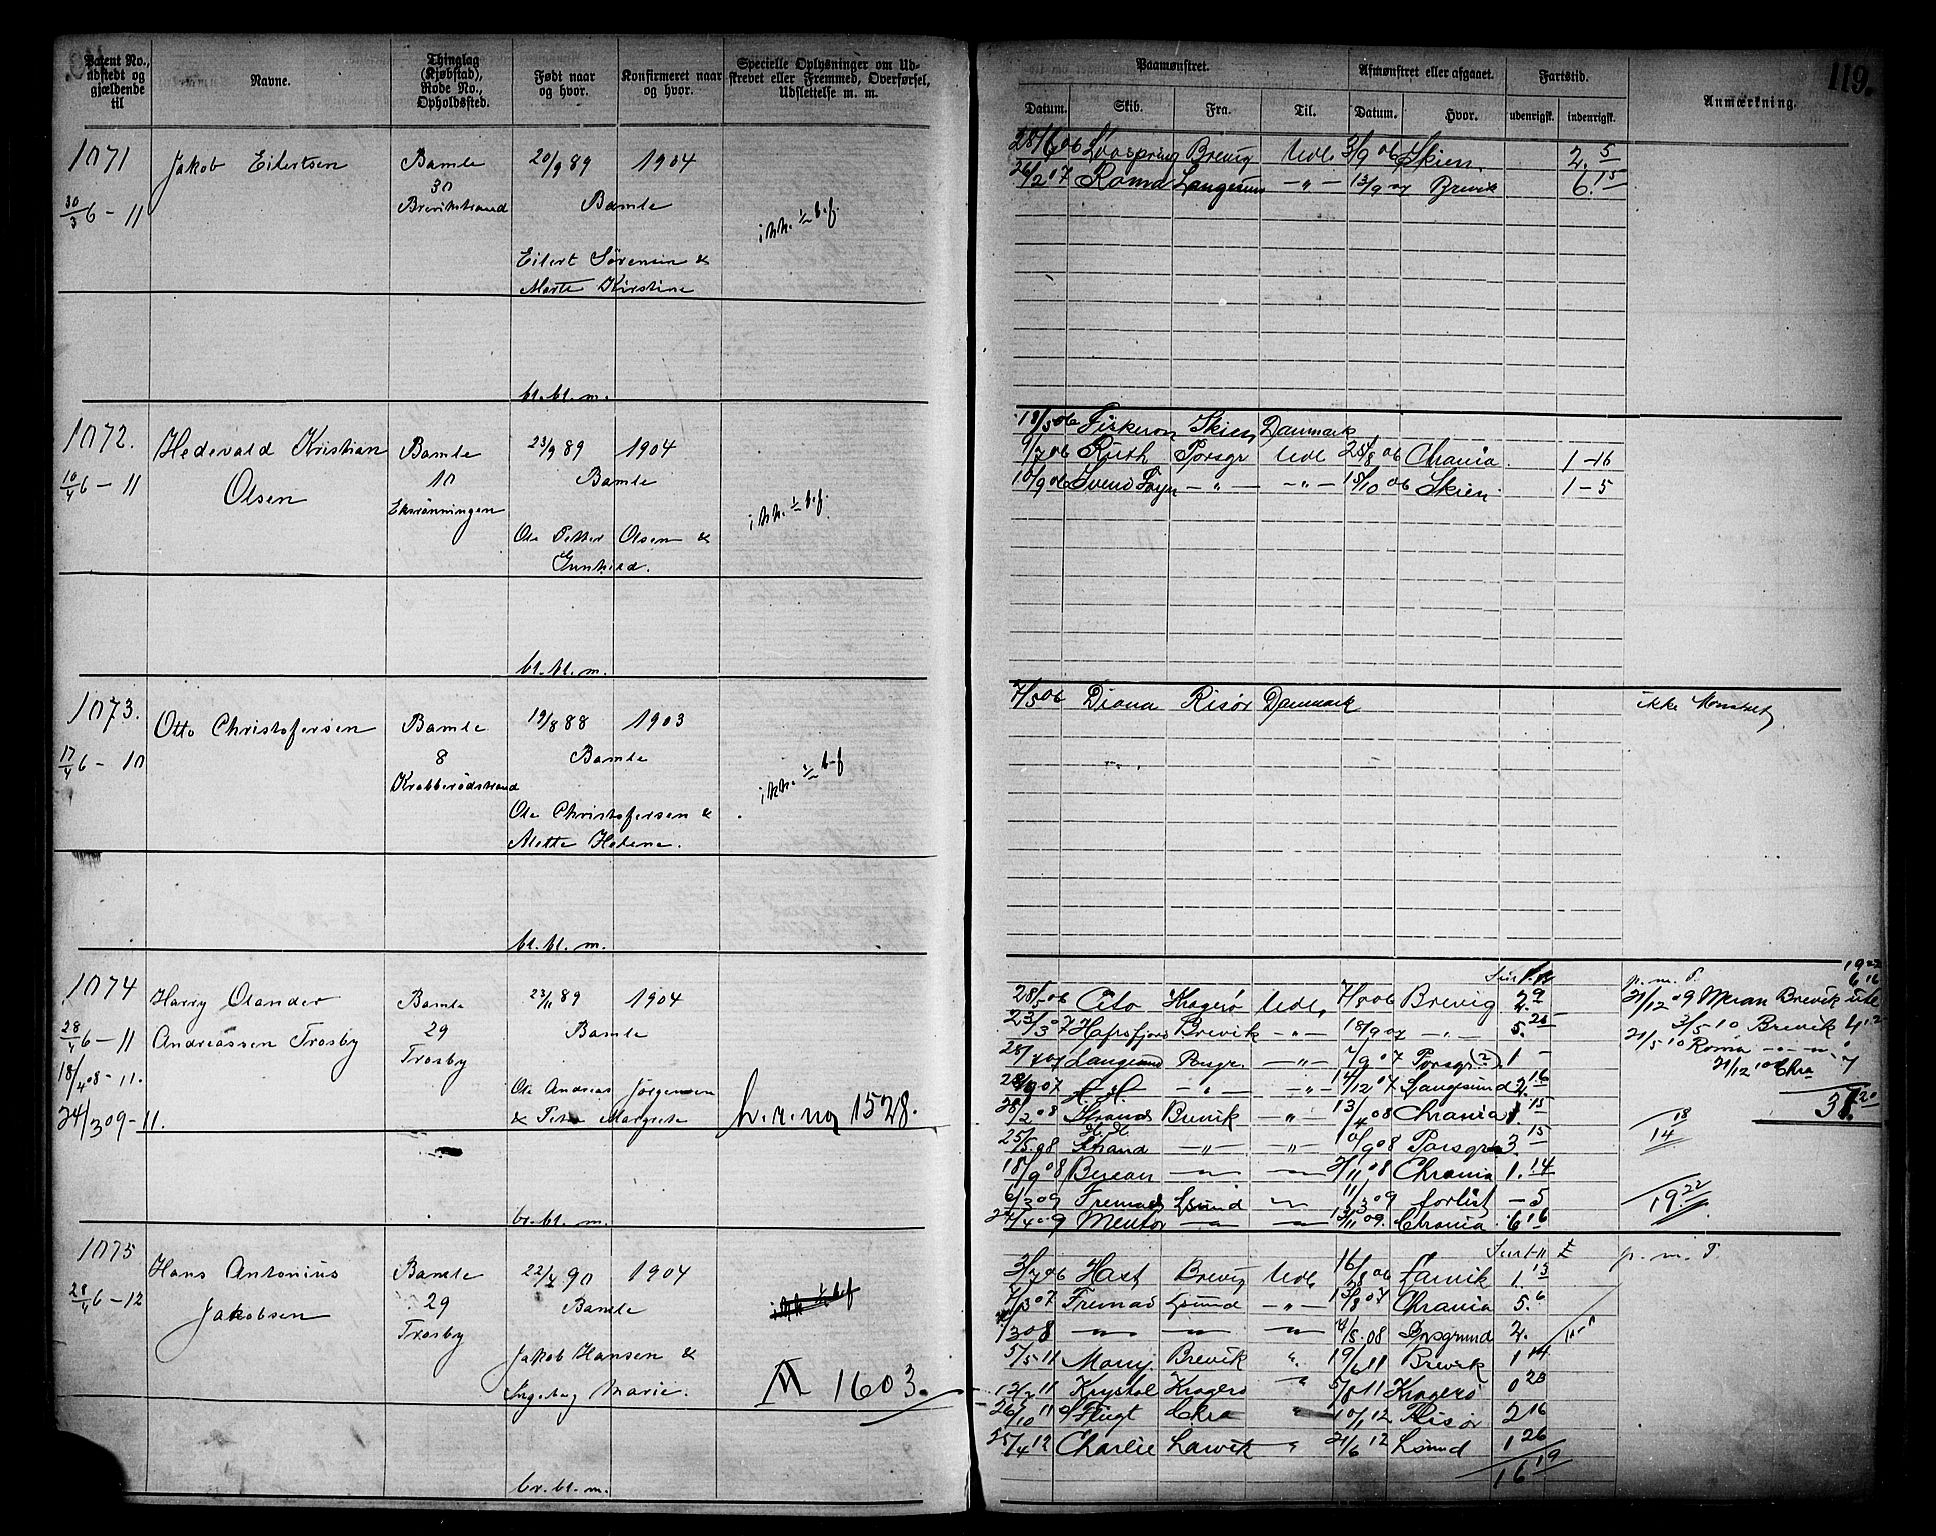 Patent No., udstedt og gjældende til
Navne.
Thinglag (Kjøbstad), Rode No., Opholdssted.
Født naar og hvor.
Konfirmeret naar og hvor.
Specielle Oplysninger om Udskrevet eller Fremmed, Overførsel, Udslettelse m. m.
Paamønstret.
Datum. Skib. Fra. Til.
Afmønstret eller afgaaet.
Datum. Hvor.
Fartstid.
udenrigsk. indenrigsk.
Anmærkning.
119.
1071 Jakob Eilertsen Bamle 20/9 89 1904
30/3 6 - 11
30
Brevikstrand
Bamle
Eilert Sørensen &
Marte Kirstine
bl. bl. m.
Brevig Udl 3/9 06 Skien 2. 5
26/2 07 Roma Langesund - " - 13/9 07 Brevik 6. 15
1072. Hedevald Kristian Olsen Bamle 23/9 89 1904
10/4 6 - 11
10
Bamle
Ekrønningen
Ole Petter Olsen &
Gunhild.
bl. bl. m.
18/5 06 Skien Danmark
9/7 06 Ruth Porsgr Udl 28/8 06 Chrania 1 - 16
10/9 06 Svend Foyn - " - - " - 15/10 06 Skien 1 - 5
1073. Otto Christofersen Bamle 19/8 88 1903
17/4 6 - 10
8
Bamle
Krabberødstrand
Ole Christofersen &
Mette Helene.
bl. bl. m.
7/5 06 Diana Risør Danmark ikke Mønstret
1074 Harry Olander Andreassen Trosby Bamle 23/11 89 1904
28/4 6 - 11
18/4 08 - 11.
24/3 09 - 11.
29
Trosby
Bamle
Ole Andreas Jørgensen
& Margrete
1528.
bl. bl. m.
28/5 06 Kragerø Udl. Brevig 2. 9
23/3 07 Hafrsfjord Brevik - " - 18/9 07 - " - 5. 25
Langesund Porsgr - " - 7/9 07 Porsgr (?) 1 -
H. H. - " - - " - 14/12 07 Langesund 2. 16
28/2 08 Strand Brevik - " - 13/4 08 Chrania 1. 15
H. H.
25/5 08 Strand - " - - " - 10/9 08 Porsgrund 3. 15
18/9 08 Berean 2/11 08 Chrania 1. 14
6/3 09 Fremad Lsund 11/3 09 forlist - 5
24/4 09 Mentor 13/11 09 Chrania 6 16
p. m. T.
21/12 09 Meran Brevik
3/5 10 Brevik 4 12
21/5 10 Roma
21/12 10 Chra 7
18
14
19 22
1075 Hans Antonius Jakobsen Bamle 22/4 90 1904
28/4 6 - 12
29
Trosby
Bamle
Jakob Hansen &
Ingeborg Marie.
1603.
bl. bl. m.
p. m. T.
3/7 06 Høst Brevig Udl 16/8 06 Larvik 1. 13
7/3 07 Fremad Lsund - " - 13/8 07 Chrania 5. 6
4/5 08 Porsgrund 2.
5/5 11 Brevik " 19/6 11 Brevik 1 14
Krystal Kragerø " 5/8 11 Kragerø 0 23
26/10 11 Flugt Chra " 10/1 12 Risør 2 16
25/4 12 Charlie Larvik " 21/6 12 Lsund 1 26
16 19